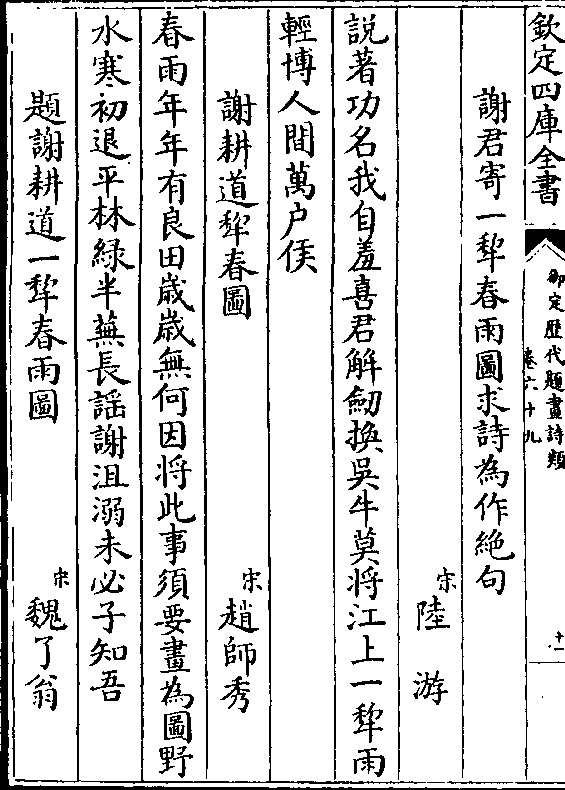 欽定四庫全書
御定歷代題畫詩類
卷六十九
十一
謝君寄一犂春雨圖求詩為作絶句
宋陸游
說著功名我自羞喜君解劒換吳牛莫將江上一犂雨
輕博人間萬户侯
謝耕道犂春圖
宋趙師秀
春雨年年有良田歲歲無何因將此事須要畫為圖野
水寒初退平林綠半蕪長謡謝沮溺未必子知吾
題謝耕道一犂春雨圖
宋魏了翁